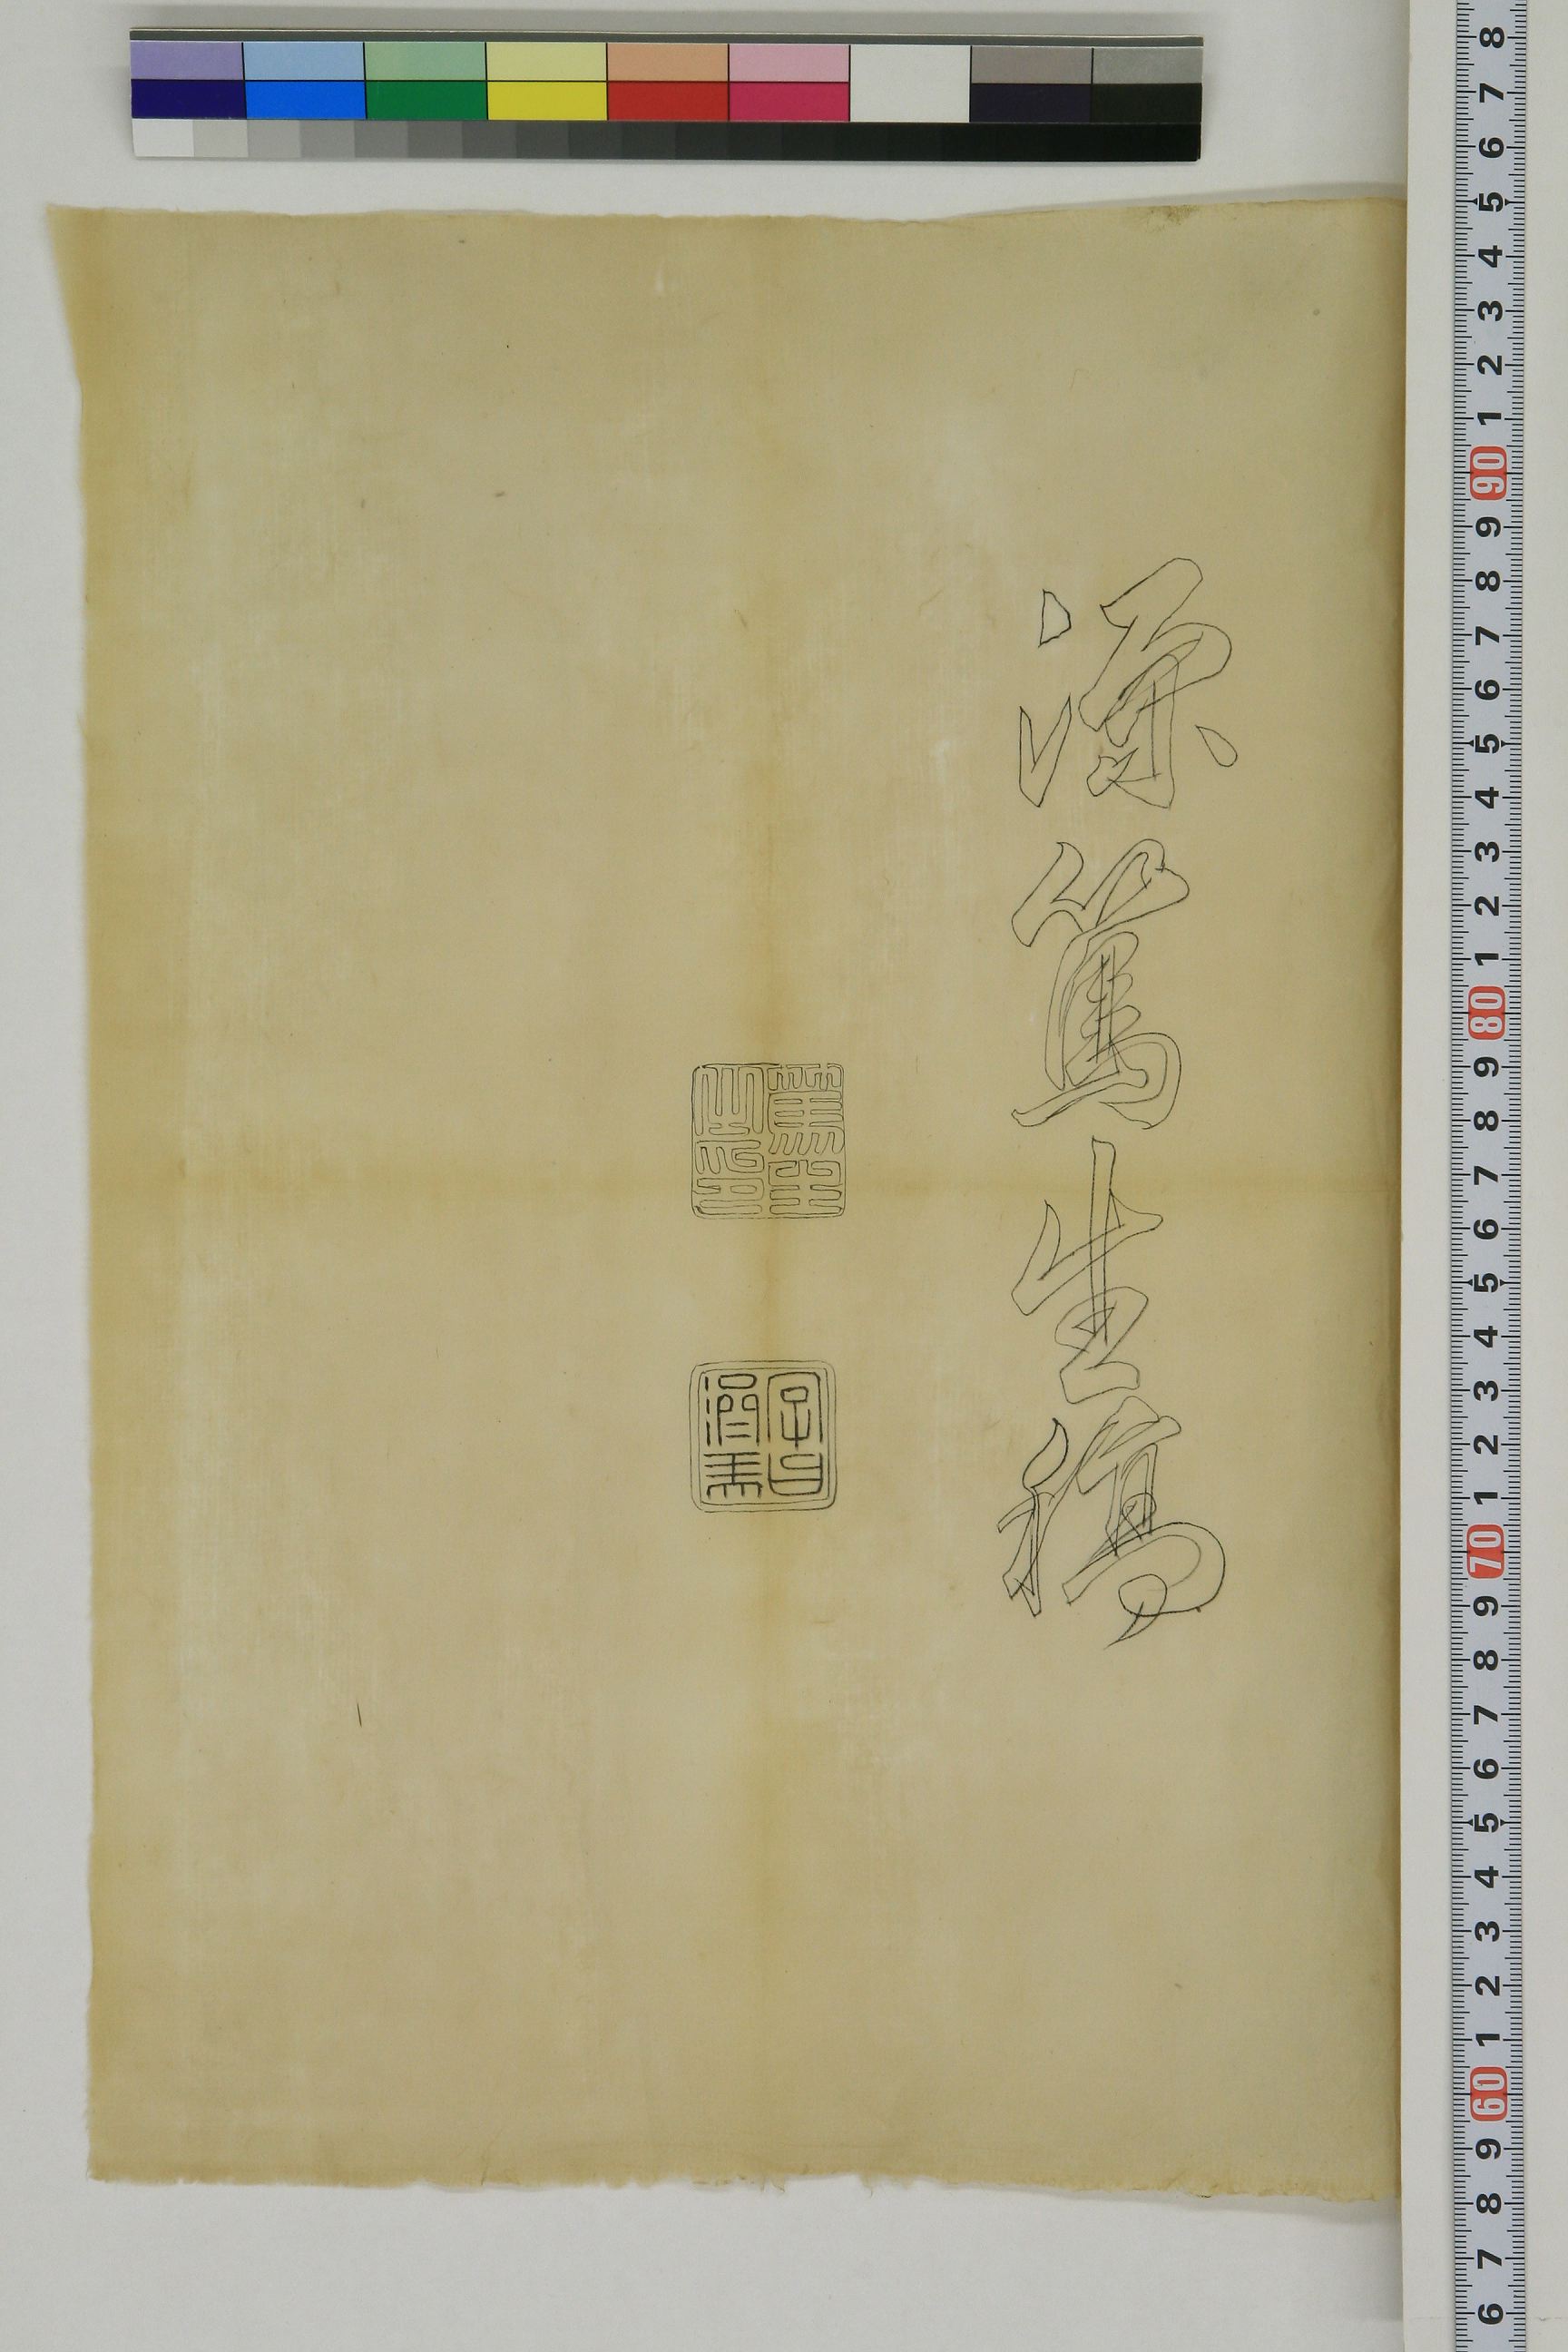 源篤生稿
篤生之印
字曰潤
6 7 8 9 60 1 2 3 4 5 6 7 8 9 70 1 2 3 4 5 6 7 8 9 80 1 2 3 4 5 6 7 8 9 90 1 2 3 4 5 6 7 8